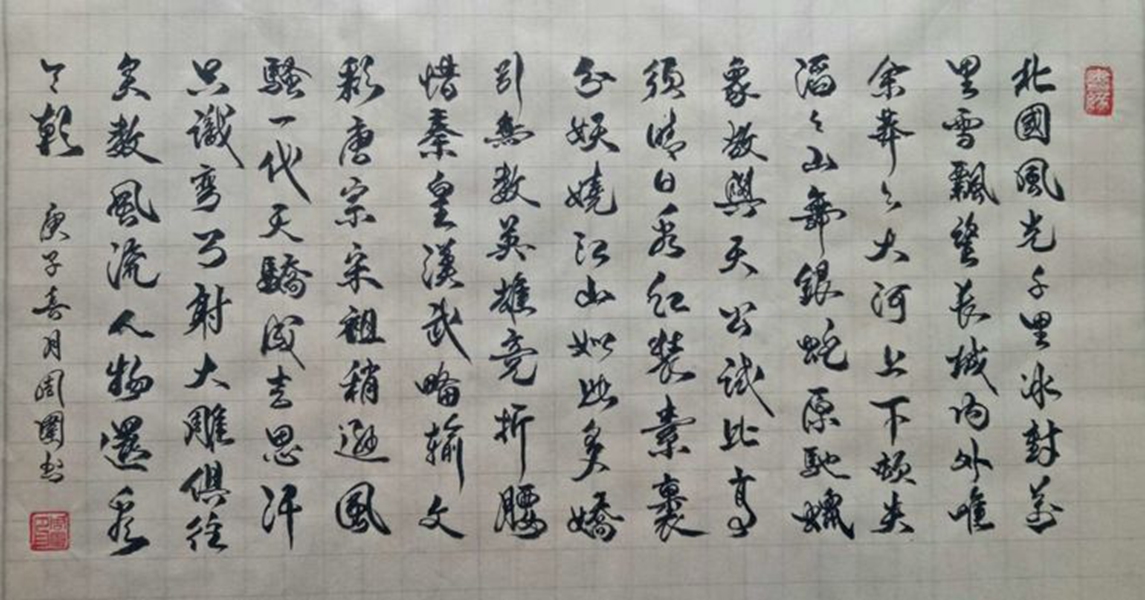 北國風光千里冰封萬
里雪飄望長城内外唯
余莽々大河上下頓失
滔々山舞銀蛇原馳蠟
象欲與天公試比高
須晴日看紅裝素裹
分妖嬈江山如此多嬌
引無數英雄竞折腰
惜秦皇漢武略輸文
彩唐宗宋祖稍遜風
騷一代天驕成吉思汗
只識彎弓射大雕俱往
矣數風流人物還看
今朝 庚子喜月周圍书